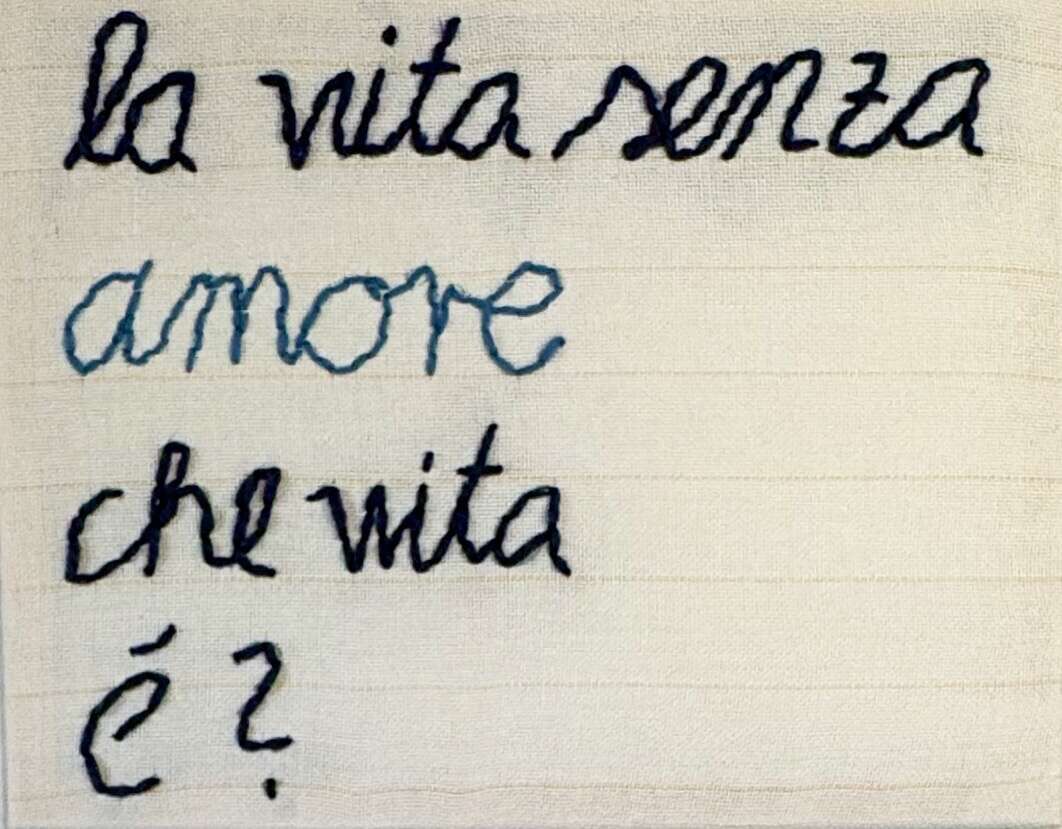 la vita senza
amore
che vita
é?